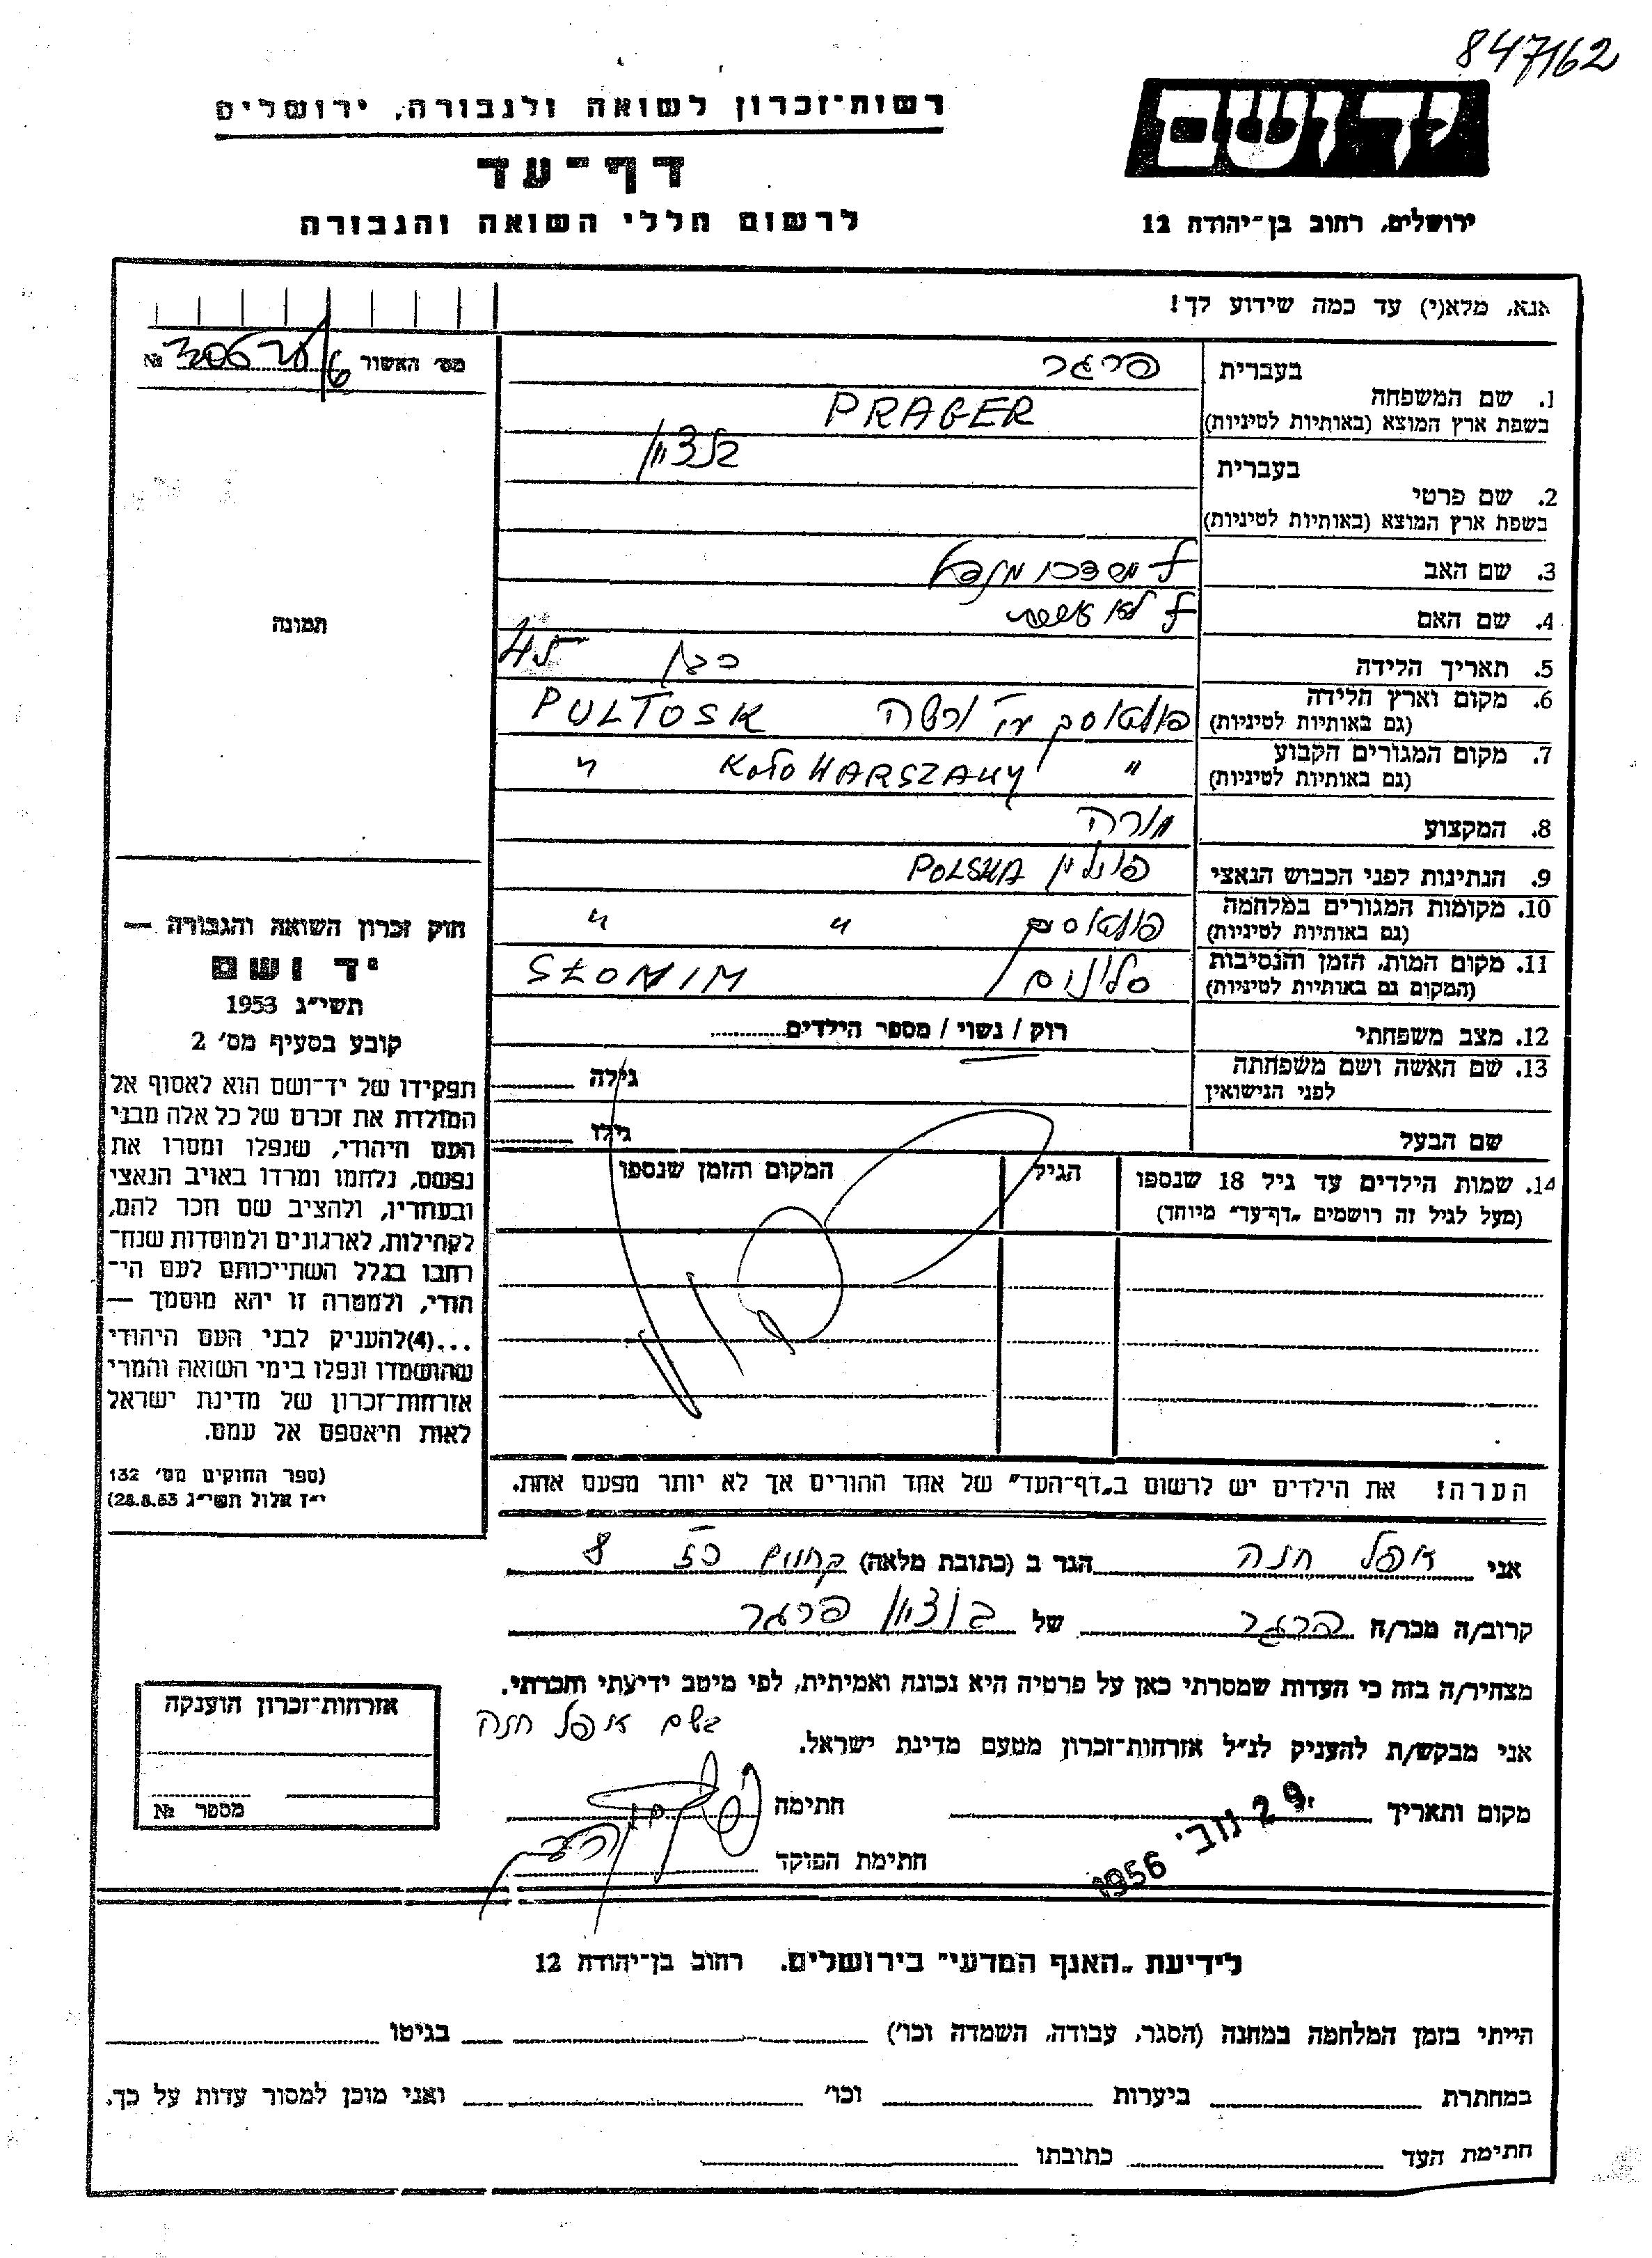 847162
רשות־זכרון לשואה ולגבורה, ירושלים
יד ושם
דף־עד
לרשום חללי השואה והגבורה
ירושלים, רחוב בן־יהודה 12
אנא, מלא(י) עד כמה שידוע לך!
מס' האשור №
1. שם המשפחה
בעברית פרגר
בשפת ארץ המוצא (באותיות לטיניות) PRAGER
2. שם פרטי
בעברית בנציון
בשפת ארץ המוצא (באותיות לטיניות)
3. שם האב
4. שם האם
5. תאריך הלידה כבן 45
6. מקום וארץ הלידה
(גם באותיות לטיניות) פולטוסק ע"י ורשה PULTOSK
7. מקום המגורים הקבוע
(גם באותיות לטיניות) " KOŁO WARSZAWY "
8. המקצוע מורה
9. הנתינות לפני הכבוש הנאצי פולין POLSKA
10. מקומות המגורים במלחמה
(גם באותיות לטיניות) פולטוסק " "
11. מקום המות, הזמן והנסיבות
(המקום גם באותיות לטיניות) סלונים SŁONIM
12. מצב משפחתי רוק / נשוי / מספר הילדים
13. שם האשה ושם משפחתה
לפני הנישואין גילה
שם הבעל גילו
14. שמות הילדים עד גיל 18 שנספו
(מעל לגיל זה רושמים "דף־עד" מיוחד)
הגיל
המקום והזמן שנספו
הערה! את הילדים יש לרשום ב"דף־העד" של אחד ההורים אך לא יותר מפעם אחת.
תמונה
חוק זכרון השואה והגבורה —
יד ושם
תשי"ג 1953
קובע בסעיף מס' 2
תפקידו של יד־ושם הוא לאסוף אל
המולדת את זכרם של כל אלה מבני
העם היהודי, שנפלו ומסרו את
נפשם, נלחמו ומרדו באויב הנאצי
ובעוזריו, ולהציב שם וזכר להם,
לקהילות, לארגונים ולמוסדות שנח־
רבו בגלל השתייכותם לעם הי־
הודי, ולמטרה זו יהא מוסמך —
...(4)להעניק לבני העם היהודי
שהושמדו ונפלו בימי השואה והמרי
אזרחות־זכרון של מדינת ישראל
לאות היאספם אל עמם.
(ספר החוקים מס' 132
י"ז אלול תשי"ג 28.8.53)
אני אופל חנה הגר ב (כתובת מלאה) 8
קרוב/ה מכר/ה של בן ציון פרגר
מצהיר/ה בזה כי העדות שמסרתי כאן על פרטיה היא נכונה ואמיתית, לפי מיטב ידיעתי והכרתי.
אני מבקש/ת להעניק לנ"ל אזרחות־זכרון מטעם מדינת ישראל.
בשם אופל חנה
מקום ותאריך 29 נוב' 1956 חתימה
חתימת הפוקד
אזרחות־זכרון הוענקה
מספר №
לידיעת "האנף המדעי" בירושלים, רחוב בן־יהודה 12
הייתי בזמן המלחמה במחנה (הסגר, עבודה, השמדה וכו') בגיטו
במחתרת ביערות וכו' ואני מוכן למסור עדות על כך.
חתימת העד כתובתו